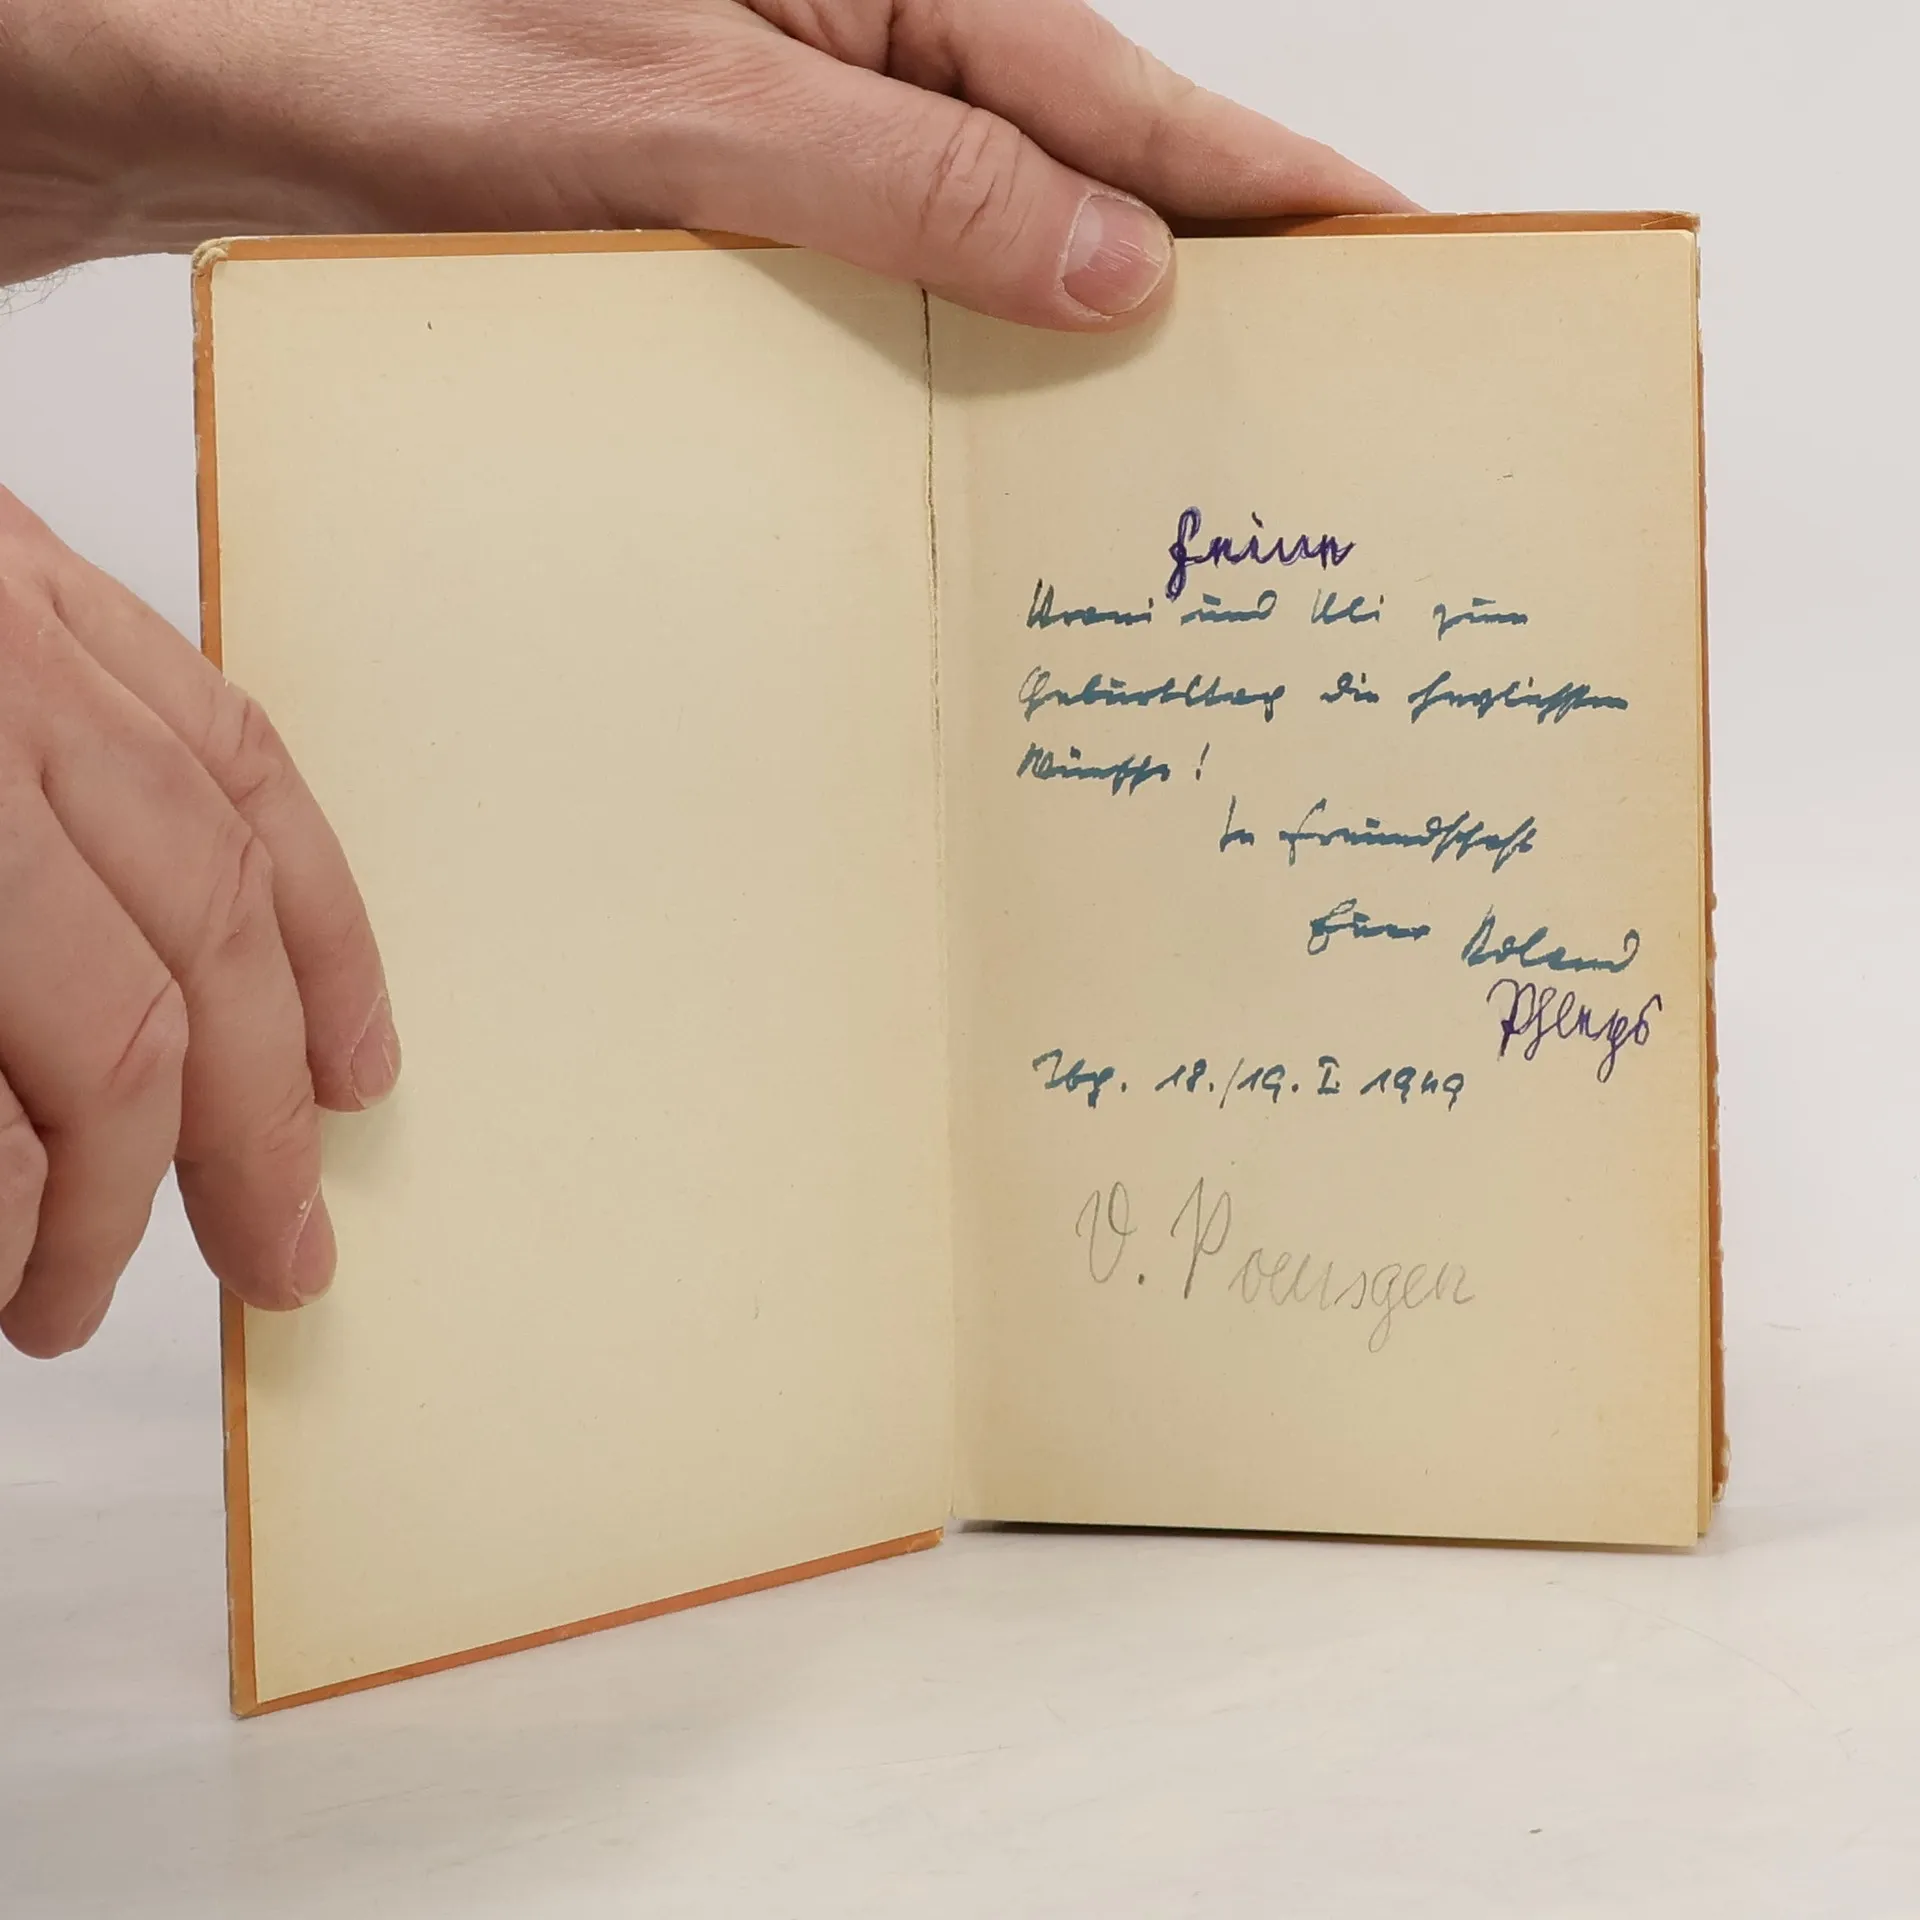 Vroni und Uli zum
Geburtstag die herzlichsten
Wünsche!
In Freundschaft
Euer Roland
Jbg. 18./19. I. 1949
V. Poensgen